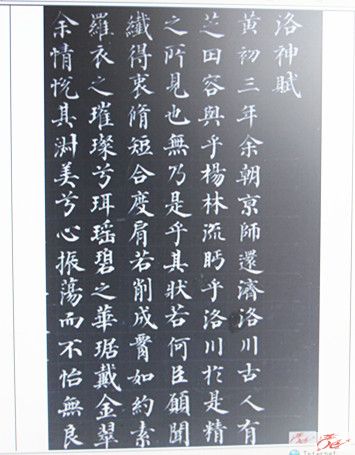 洛神賦
黄初三年余朝京師還濟洛川古人有
芝田容與乎楊林流眄乎洛川於是精
之所見也無乃是乎其狀若何臣願聞
纖得衷脩短合度肩若削成腰如約素
羅衣之璀璨兮珥瑤碧之華琚戴金翠
余情悅其淑美兮心振蕩而不怡無良
Internet